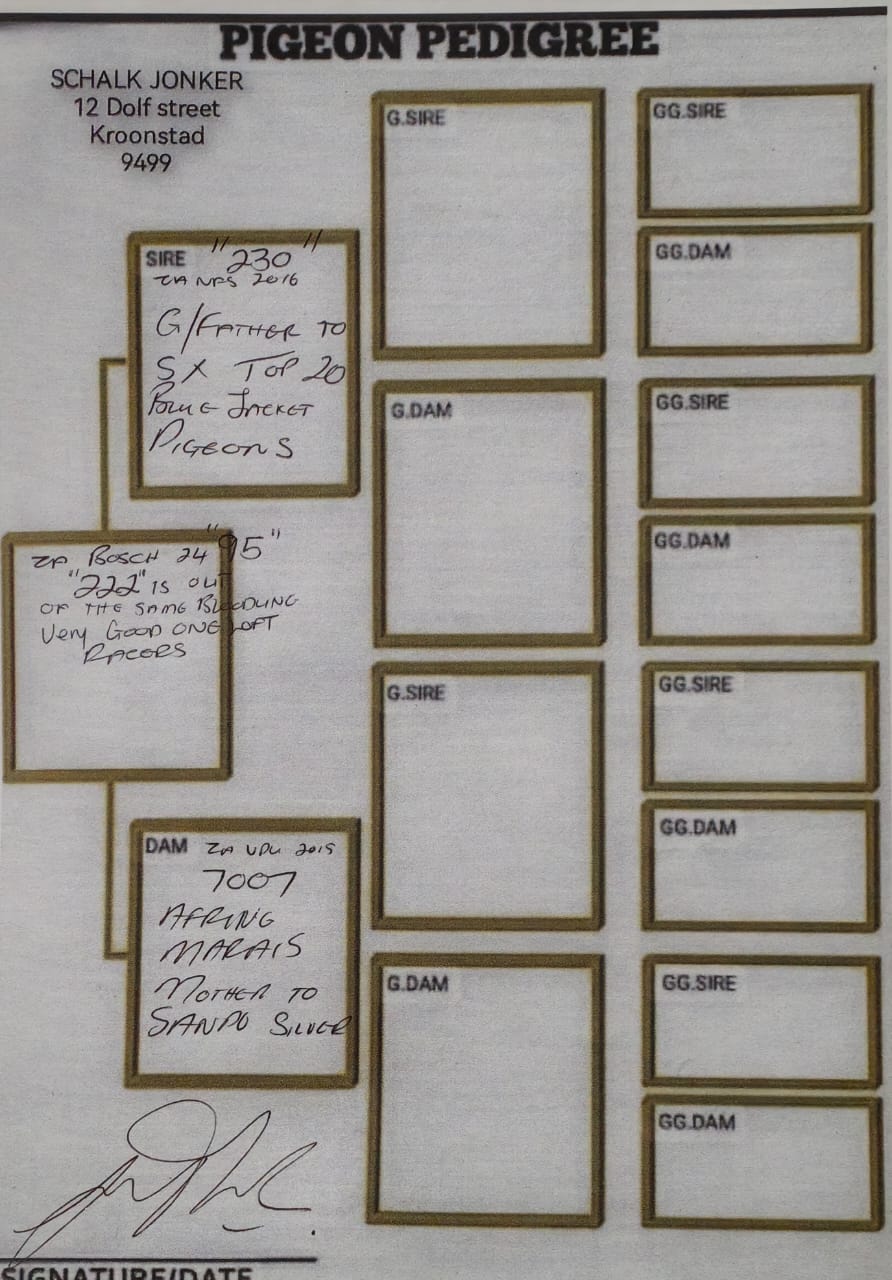 PIGEON PEDIGREE
SCHALK JONKER
12 Dolf street
Kroonstad
9499
SIRE "230"
ZA NPS 2016
G/FATHER TO
5X TOP 20
BLUE JACKET
PIGEONS
ZA BOSCH 24 "95"
"222" IS OUT
OF THE SAME BLOODLINE
Very GOOD ONE LOFT
RACERS
DAM ZA VDU 2019
7007
AFRINO
MARAIS
MOTHER TO
SANPO SILVER
G.SIRE
G.DAM
G.SIRE
G.DAM
GG.SIRE
GG.DAM
GG.SIRE
GG.DAM
GG.SIRE
GG.DAM
GG.SIRE
GG.DAM
SIGNATURE/DATE